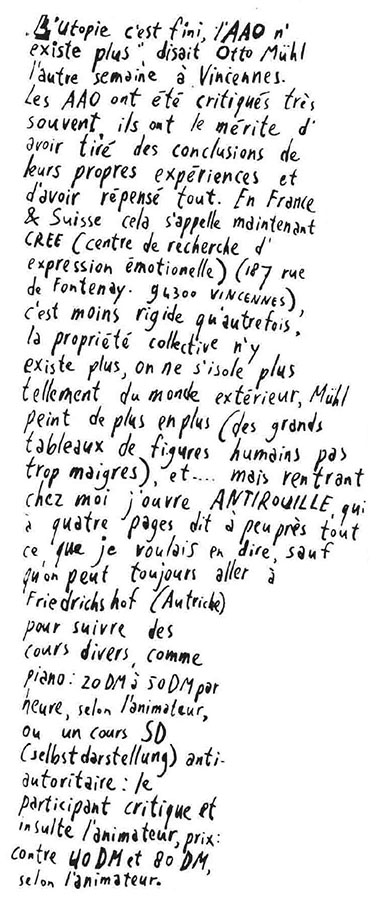 "L'utopie c'est fini, l'AAO n'
existe plus", disait Otto Mühl
l'autre semaine à Vincennes.
Les AAO ont été critiqués très
souvent, ils ont le mérite d'
avoir tiré des conclusions de
leurs propres expériences et
d'avoir répensé tout. En France
& Suisse cela s'appelle maintenant
CREE (centre de recherche d'
expression émotionelle) (187 rue
de Fontenay. 94300 VINCENNES),
c'est moins rigide qu'autrefois,
la propriété collective n'y
existe plus, on ne s'isole plus
tellement du monde extérieur, Mühl
peint de plus en plus (des grands
tableaux de figures humains pas
trop maigres), et.... mais rentrant
chez moi j'ouvre ANTIROUILLE, qui
à quatre pages dit à peu près tout
ce que je voulais en dire, sauf
qu'on peut toujours aller à
Friedrichshof (Autriche)
pour suivre des
cours divers, comme
piano: 20 DM à 50 DM par
heure, selon l'animateur,
ou un cours SD
(selbstdarstellung) anti-
autoritaire: le
participant critique et
insulte l'animateur, prix:
contre 40 DM et 80 DM,
selon l'animateur.